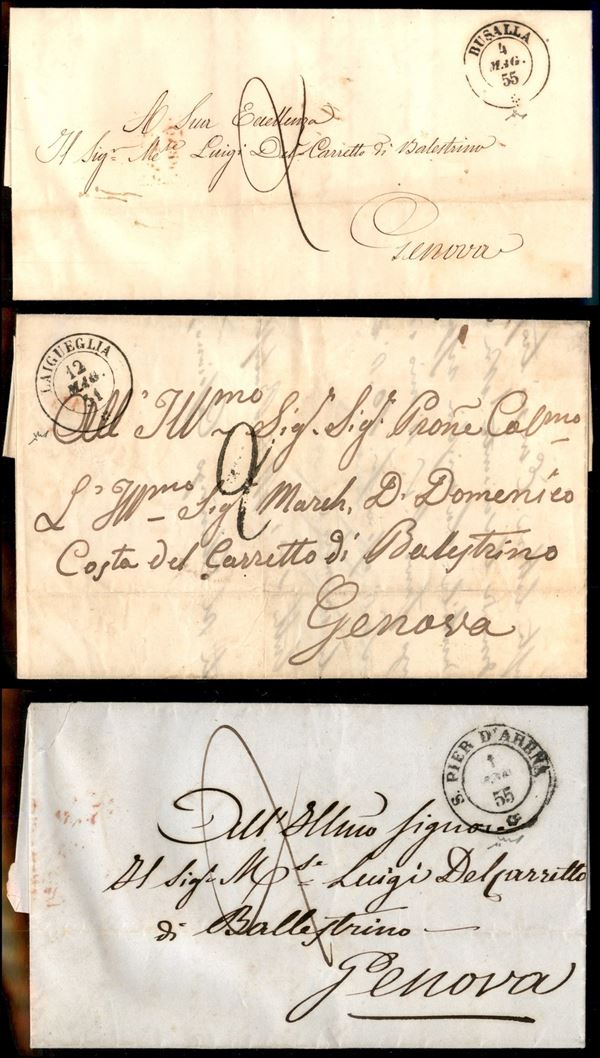 BUSALLA
4
MAG.
55
A Sua Eccellenza
Il Sigr. Mere Luigi Del Carretto di Balestrino
2
Genova
LAIGUEGLIA
12
MAG.
51
All' Illmo Sigr. Sigr. Prone Colmo
2
L'Illmo Sigr March. D. Domenico
Costa del Carretto di Balestrino
Genova
S. PIER D'ARENA
1
55
All' Illmo Signor
Il Sigr. Mse Luigi Del Carretto
di Ballestrino
Genova